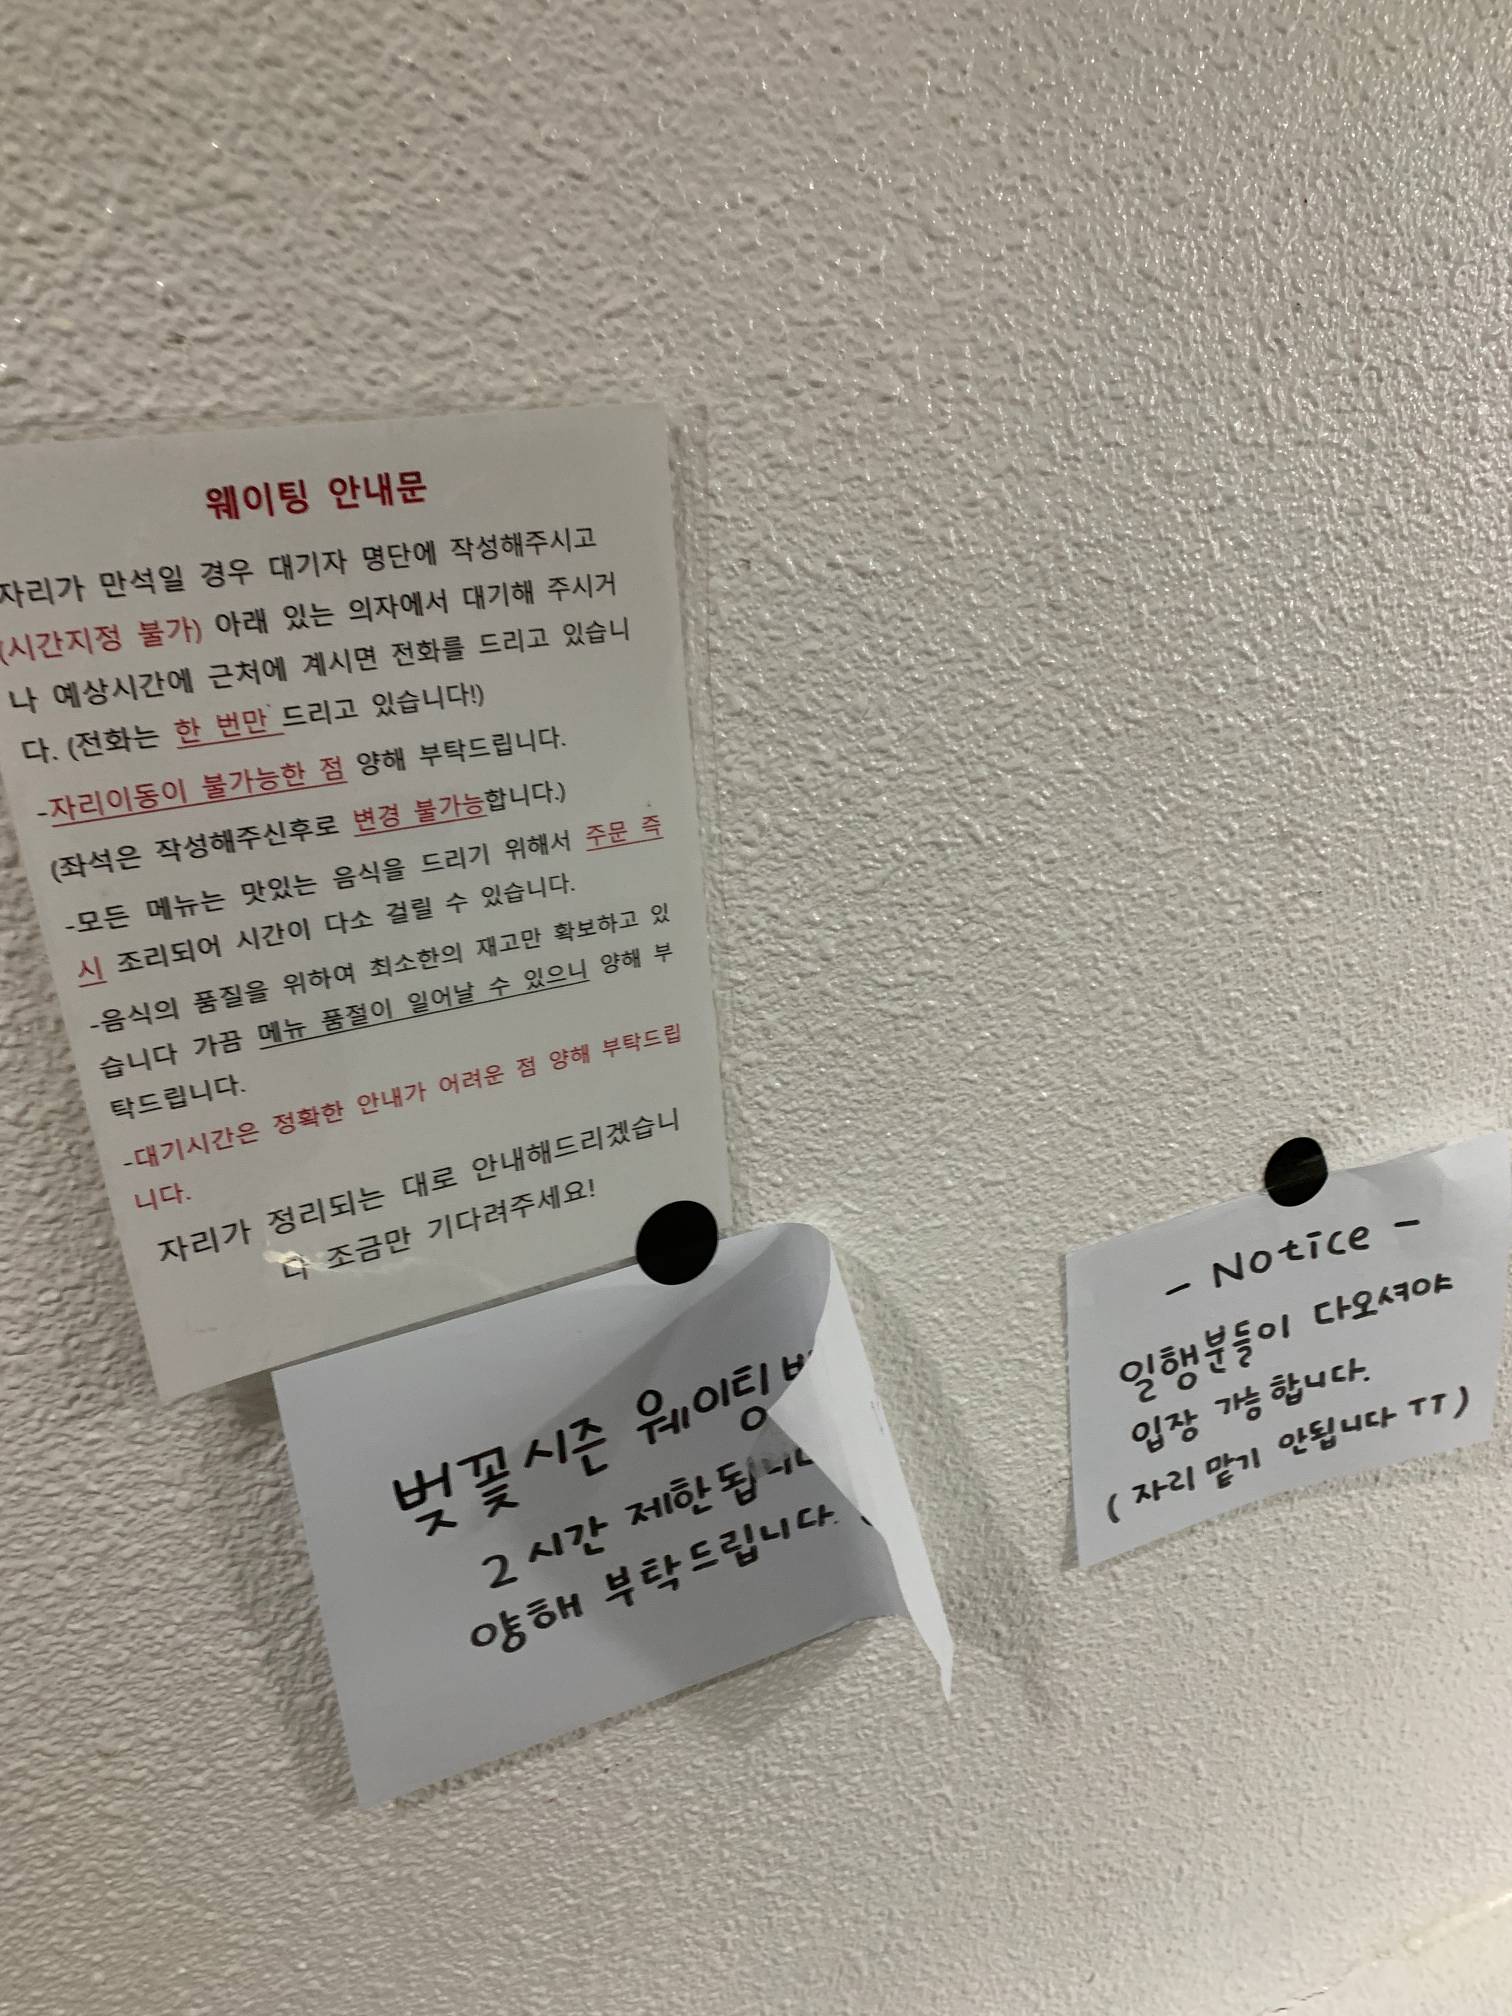 웨이팅 안내문
자리가 만석일 경우 대기자 명단에 작성해주시고
(시간지정 불가) 아래 있는 의자에서 대기해 주시거
나 예상시간에 근처에 계시면 전화를 드리고 있습니
다. (전화는 한 번만 드리고 있습니다!)
-자리이동이 불가능한 점 양해 부탁드립니다.
(좌석은 작성해주신후로 변경 불가능합니다.)
-모든 메뉴는 맛있는 음식을 드리기 위해서 주문 즉
시 조리되어 시간이 다소 걸릴 수 있습니다.
-음식의 품질을 위하여 최소한의 재고만 확보하고 있
습니다 가끔 메뉴 품절이 일어날 수 있으니 양해 부
탁드립니다.
-대기시간은 정확한 안내가 어려운 점 양해 부탁드립
니다.
자리가 정리되는 대로 안내해드리겠습니
다 조금만 기다려주세요!
벚꽃시즌 웨이팅
2시간 제한됩니다
양해 부탁드립니다.
- Notice -
일행분들이 다오셔야
입장 가능합니다.
(자리 맡기 안됩니다 TT)